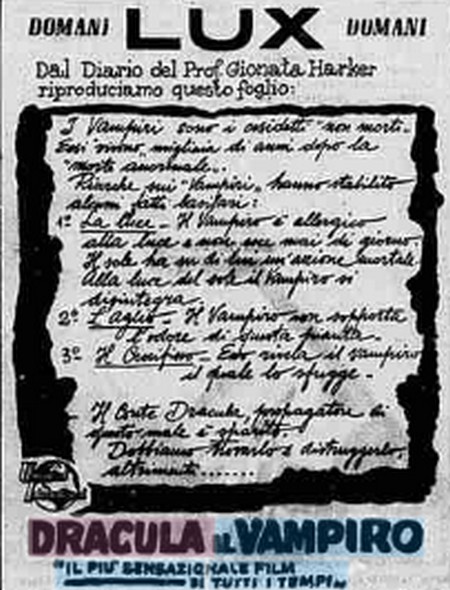 DOMANI LUX DOMANI
Dal Diario del Prof. Gionata Harker
riproduciamo questo foglio:
I Vampiri sono i cosidetti "non morti".
Essi vivono migliaia di anni dopo la
"morte anormale".
Ricerche sui "Vampiri" hanno stabilito
alcuni fatti basilari:
1º La Luce - Il Vampiro è allergico
alla luce e non esce mai di giorno.
Il sole ha su di lui un'azione mortale.
Alla luce del sole il Vampiro si
disintegra.
2º L'Aglio - Il Vampiro non sopporta
l'odore di questa pianta.
3º Il Crocifisso - Esso rivela il vampiro
il quale lo sfugge -
Il Conte Dracula, propagatore di
questo male è sparito.
Dobbiamo trovarlo e distruggerlo,
altrimenti.......
Universal
International
DRACULA IL VAMPIRO
"IL PIÙ SENSAZIONALE FILM
DI TUTTI I TEMPI"